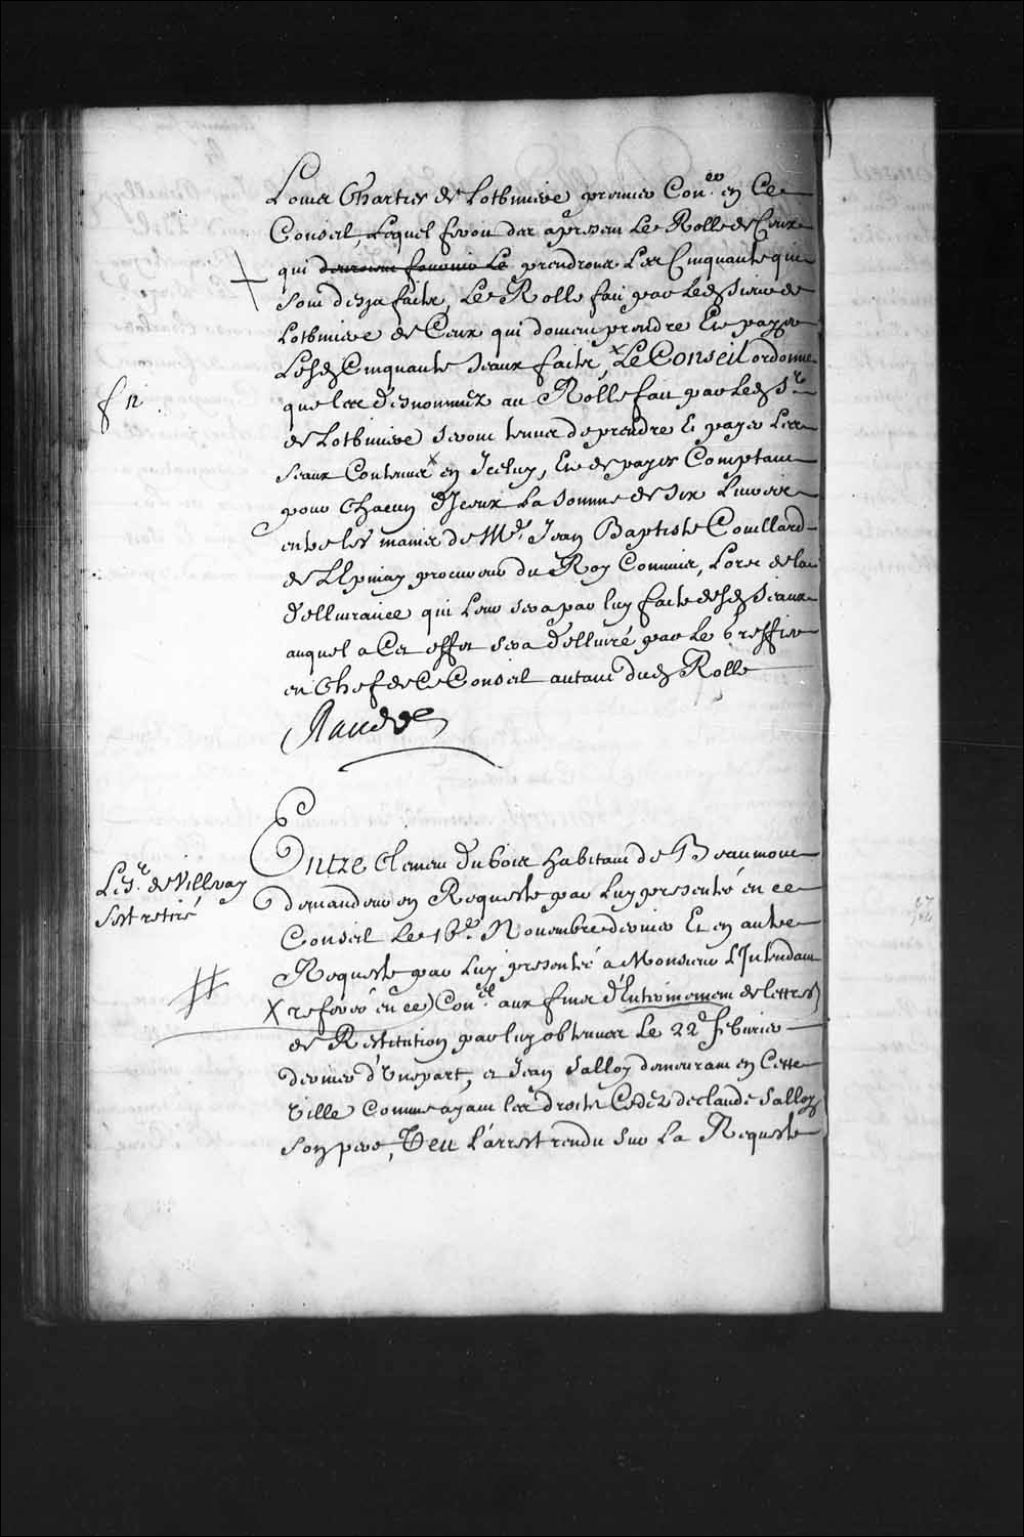 Louis Chartier de Lotbiniere premier Con.er en Ce
Conseil, Lequel feroit dez apresent Le Rolle de Ceux
qui devroient fournir Le prendront Les Cinquante qui
sont desja faits, Le Rolle fait par Ledt Sieur de
Lotbiniere de Ceux qui doivent prendre Et payer
Lesd Cinquante seaux faits, x Le Conseil ordonne
que les desnommez au Rolle fait par Ledt Sr
f n.
de Lotbiniere seront tenus de prendre Et payer Les
seaux Contenus x en Iceluy, Et de payer Comptant
pour Chacun d'Iceux La somme de six Livres
entre les mains de Me Jean Baptiste Couillard
de L'Epinay procureur du Roy Commis, Lors de la
dellivrance qui Leur sera par luy faite desd Seaux
auquel a Cet effet sera dellivré par Le Greffier
en Chef de Ce Conseil autant dud Rolle
Raudot
Entre Clement Dubois habitant de Beaumont
Le Sr. de Villeray
s'est retiré
demandeur en Requeste par Luy presentée en ce
Conseil Le 16e Novembre dernier Et en autre
Requeste par Luy presentée a Monsieur L'Intendant
# X referée en ce) Con.el aux fins d'Enterinement de lettres
de Restitution par luy obtenues Le 22e febvrier
dernier d'Une part, et Jean Salloy demeurant en Cette
Ville Comme ayant les droits Cedez de Claude Salloy
son pere, Veu L'arrest rendu sur La Requeste